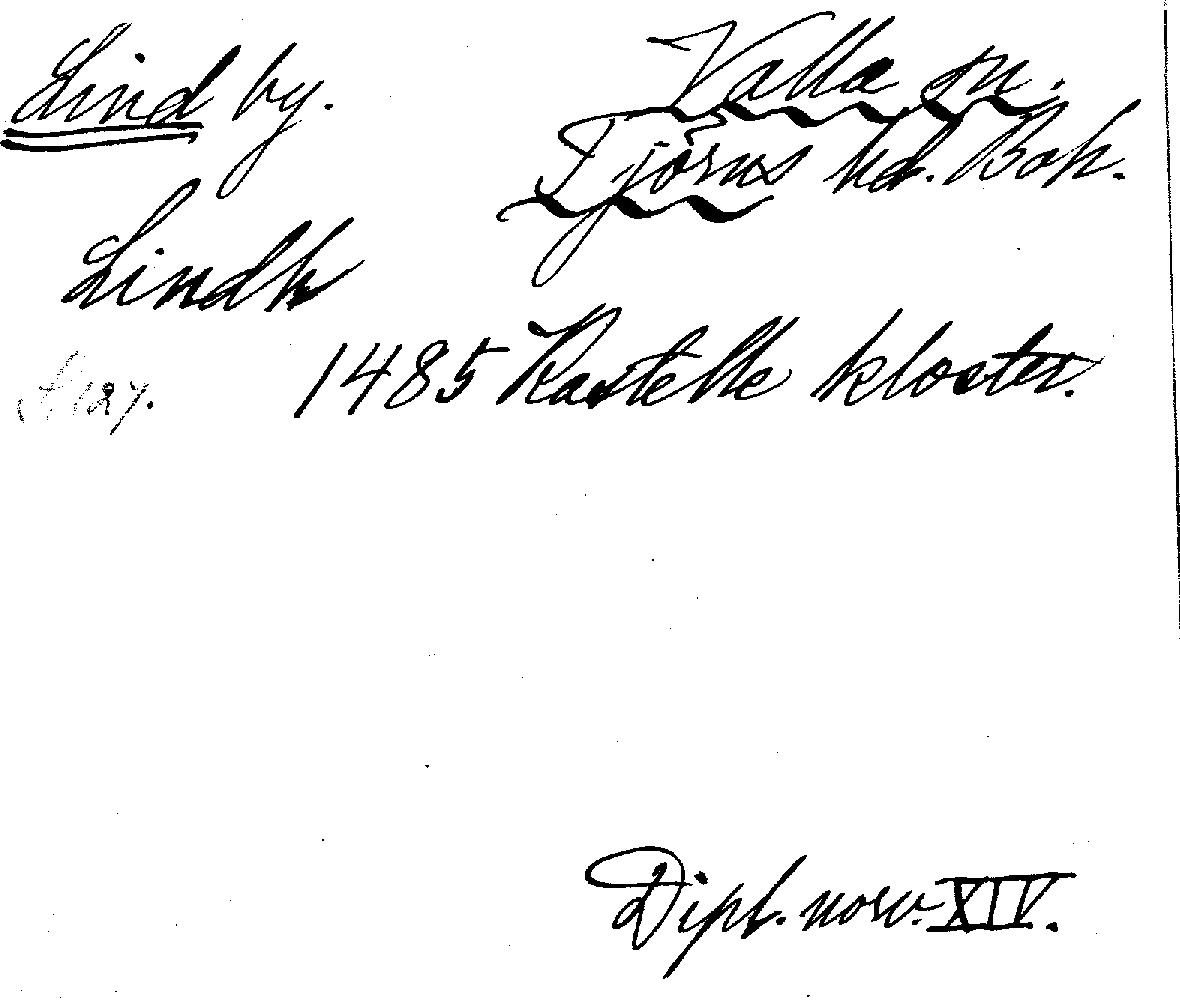 Lind by. Valla sn.
Tjörns hd. Boh.
Lindh
1485 Kastelle kloster.
s. 127.
Dipl. norv. XIV.